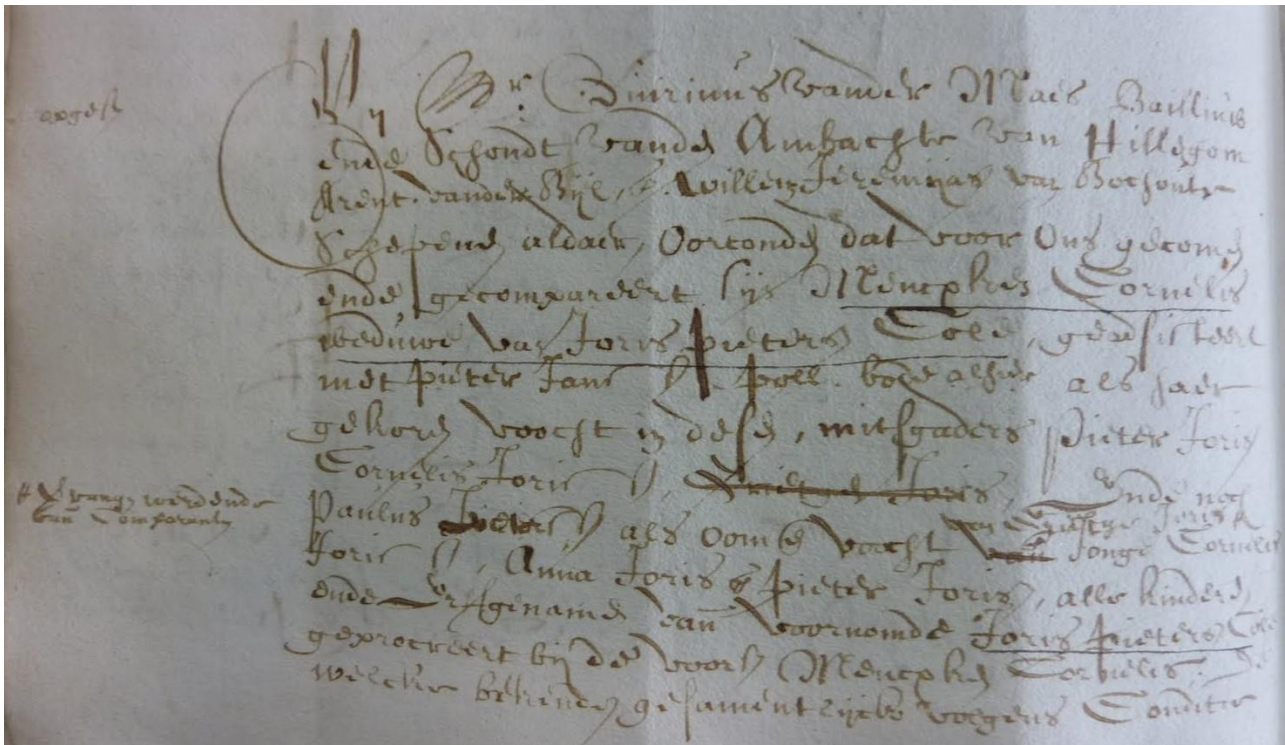 Wy Mr. Quirinus vander Maes Bailliuw
ende Schoudt vande Ambachte van Hillegom
Arent vander Bijl, Willem Jeremijas van
Schepene aldaer, Oorconde dat voor Ons gecome
ende gecompareert sijn Mencpken Cornelis
weduwe van Joris pieters Cole, geadsisteert
met pieter Jans poll bode alhier als haer
gekore voocht in dese, mitsgaders Pieter Joris
Cornelis Joris, Ende noch
Paulus pieters als oom e voocht van Joris
Jonge Cornelis
Joris, Anna Joris e pieter Joris, alle kindere
ende erfgename van voornomde Joris pieters Cole
geprocreert bij de voors Mencpken Cornelis, de
welcke bekende gesamentlijcke volgens Conditie
werdende
van Comparante